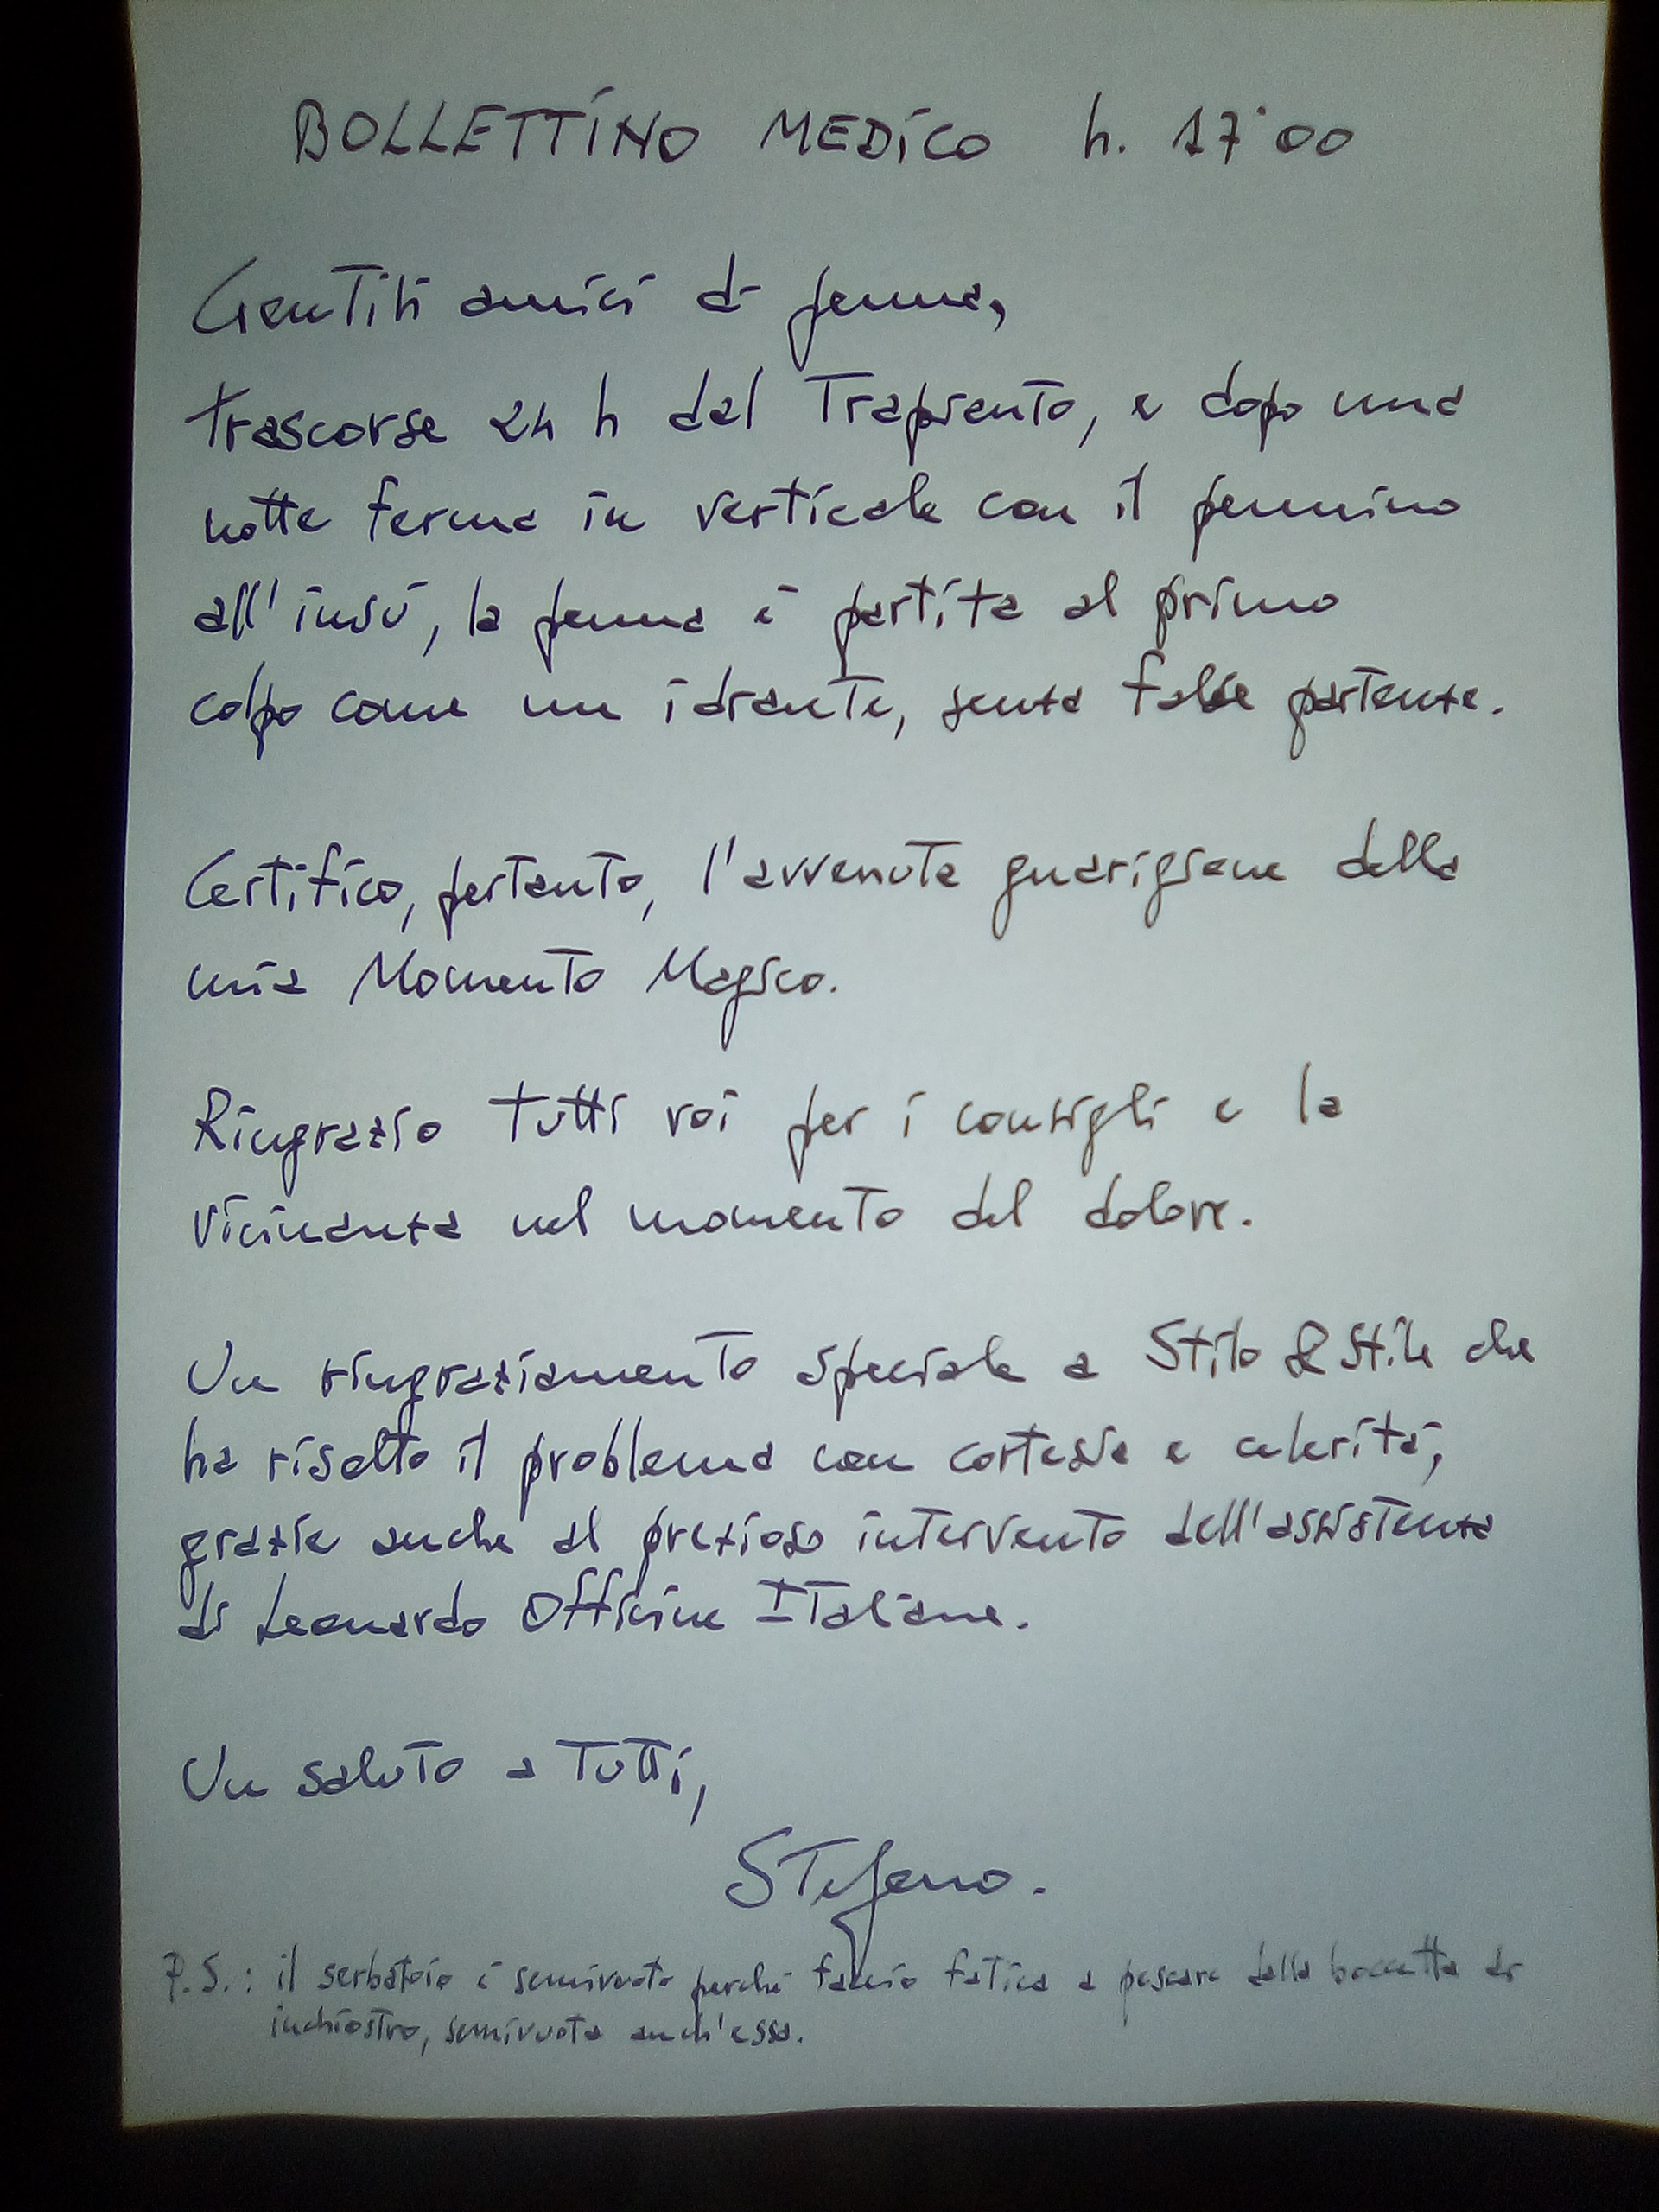 BOLLETTINO MEDICO h. 17.00
Gentili amici di penna,
trascorse 24 h dal Trapianto, e dopo una
notte ferma in verticale con il pennino
all'insù, la penna è partita al primo
colpo come un idrante, senza false partenze.
Certifico, pertanto, l'avvenuta guarigione della
mia Momento Magico.
Ringrazio tutti voi per i consigli e la
vicinanza nel momento del dolore.
Un ringraziamento speciale a Stilo & Stile che
ha risolto il problema con cortesia e celerità,
grazie anche al prezioso intervento dell'assistenza
di Leonardo Officine Italiane.
Un saluto a Tutti,
Stefano.
P.S.: il serbatoio è semivuoto perché faccio fatica a pescare dalla boccetta di
inchiostro, semivuota anch'essa.